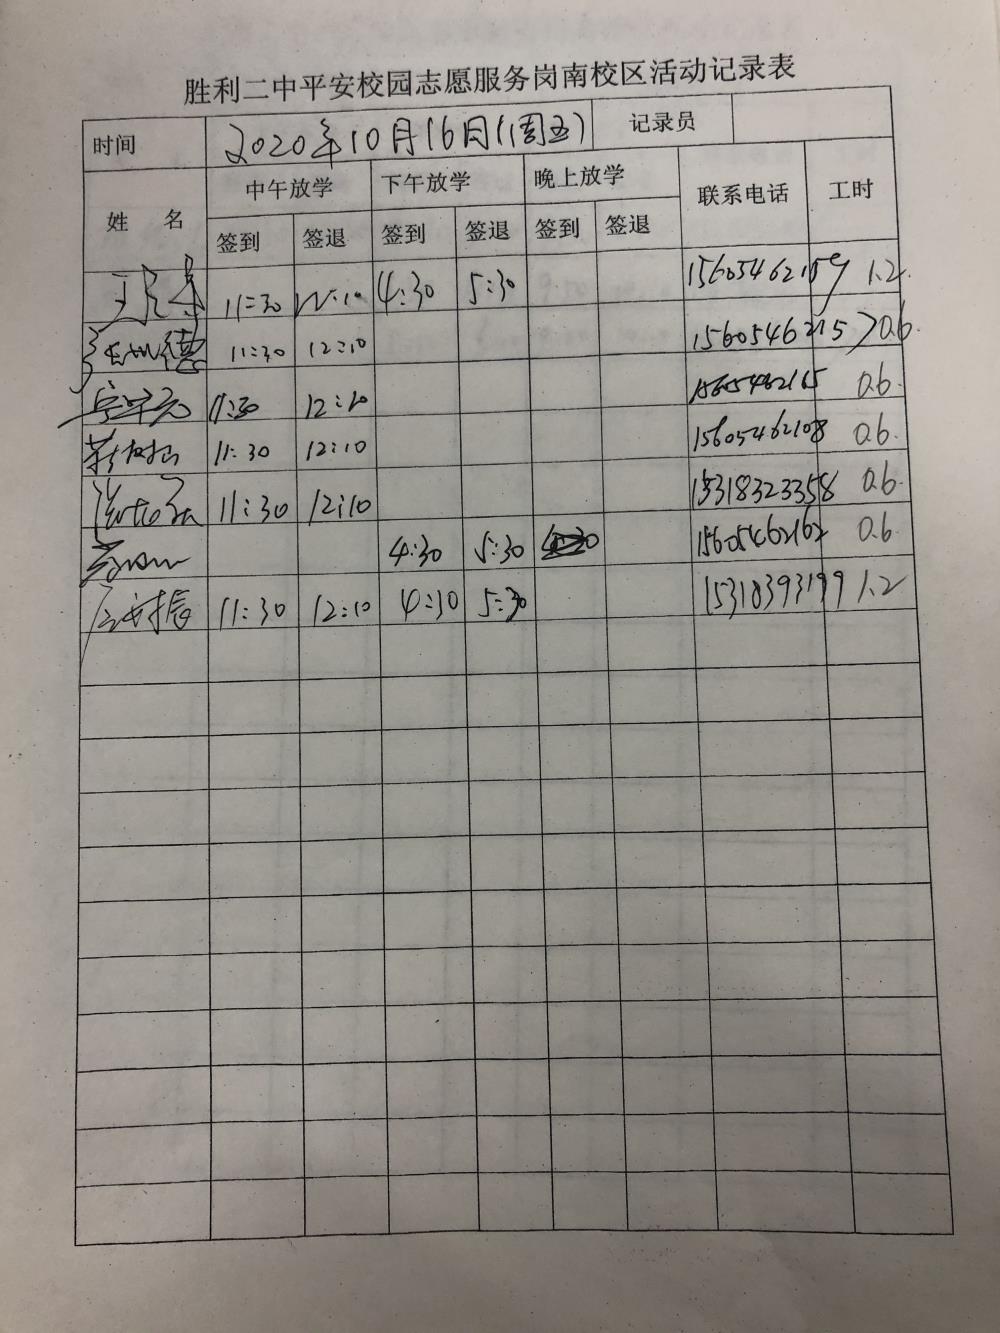 胜利二中平安校园志愿服务岗南校区活动记录表
时间 2020年10月16日(周五) 记录员
姓 名 中午放学 下午放学 晚上放学 联系电话 工时
签到 签退 签到 签退 签到 签退
11:30 12:10 4:30 5:30 15605462159 1.2
11:30 12:10 15605462157 0.6
11:30 12:10 0.6
11:30 12:10 15605462108 0.6
11:30 12:10 15318323358 0.6
4:30 5:30 15605462162 0.6
11:30 12:10 4:30 5:30 15318393199 1.2